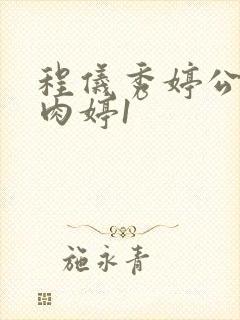 程仪秀婷公
肉婷1
施永青